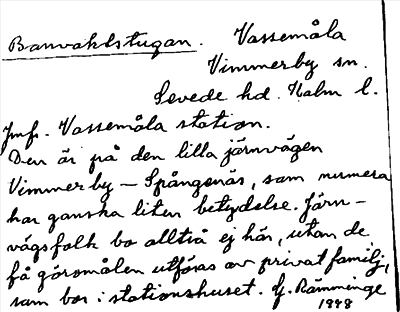 Banvaktstugan. Vassemåla
Vimmerby sn.
Sevede hd. Kalm l.
Jmfr. Vassemåla station.
Den är på den lilla järnvägen
Vimmerby – Spångenäs, som numera
har ganska liten betydelse. Järn-
vägsfolk bo alltså ej här, utan de
få göromålen utföras av privat familj,
som bor i stationshuset. G. Rämminge
1948